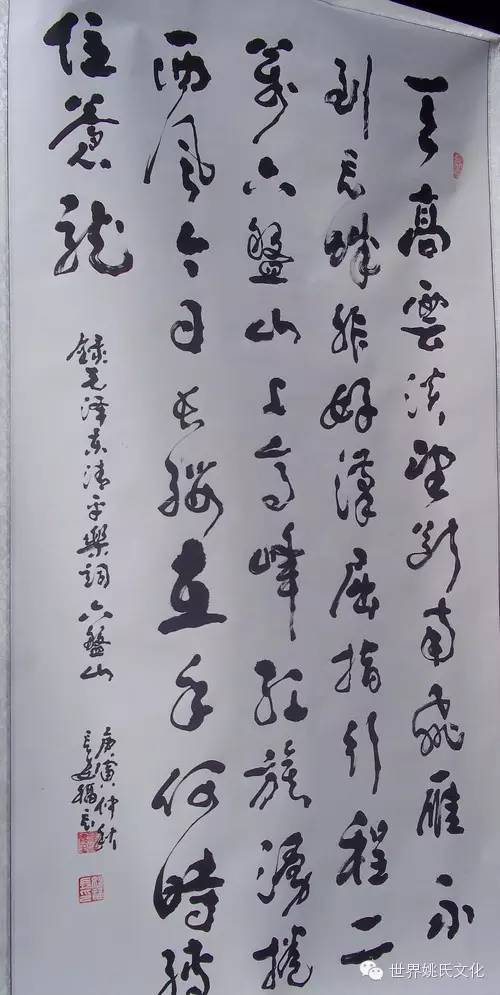 天高雲淡望斷南飛雁不
到長城非好漢屈指行程二
萬六盤山上高峰紅旗漫捲
西風今日長纓在手何時縛
住蒼龍
錄毛泽东清平樂詞六盤山
庚寅仲秋
世界姚氏文化